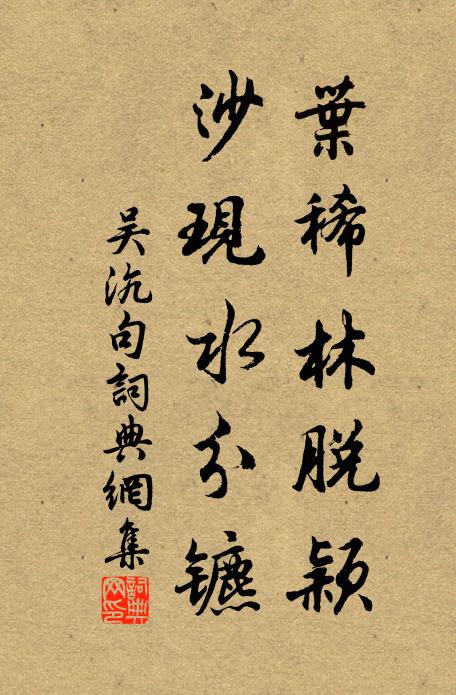 葉稀林脱穎
沙現水分镳
吴沆句詞典網集
詞典
网印